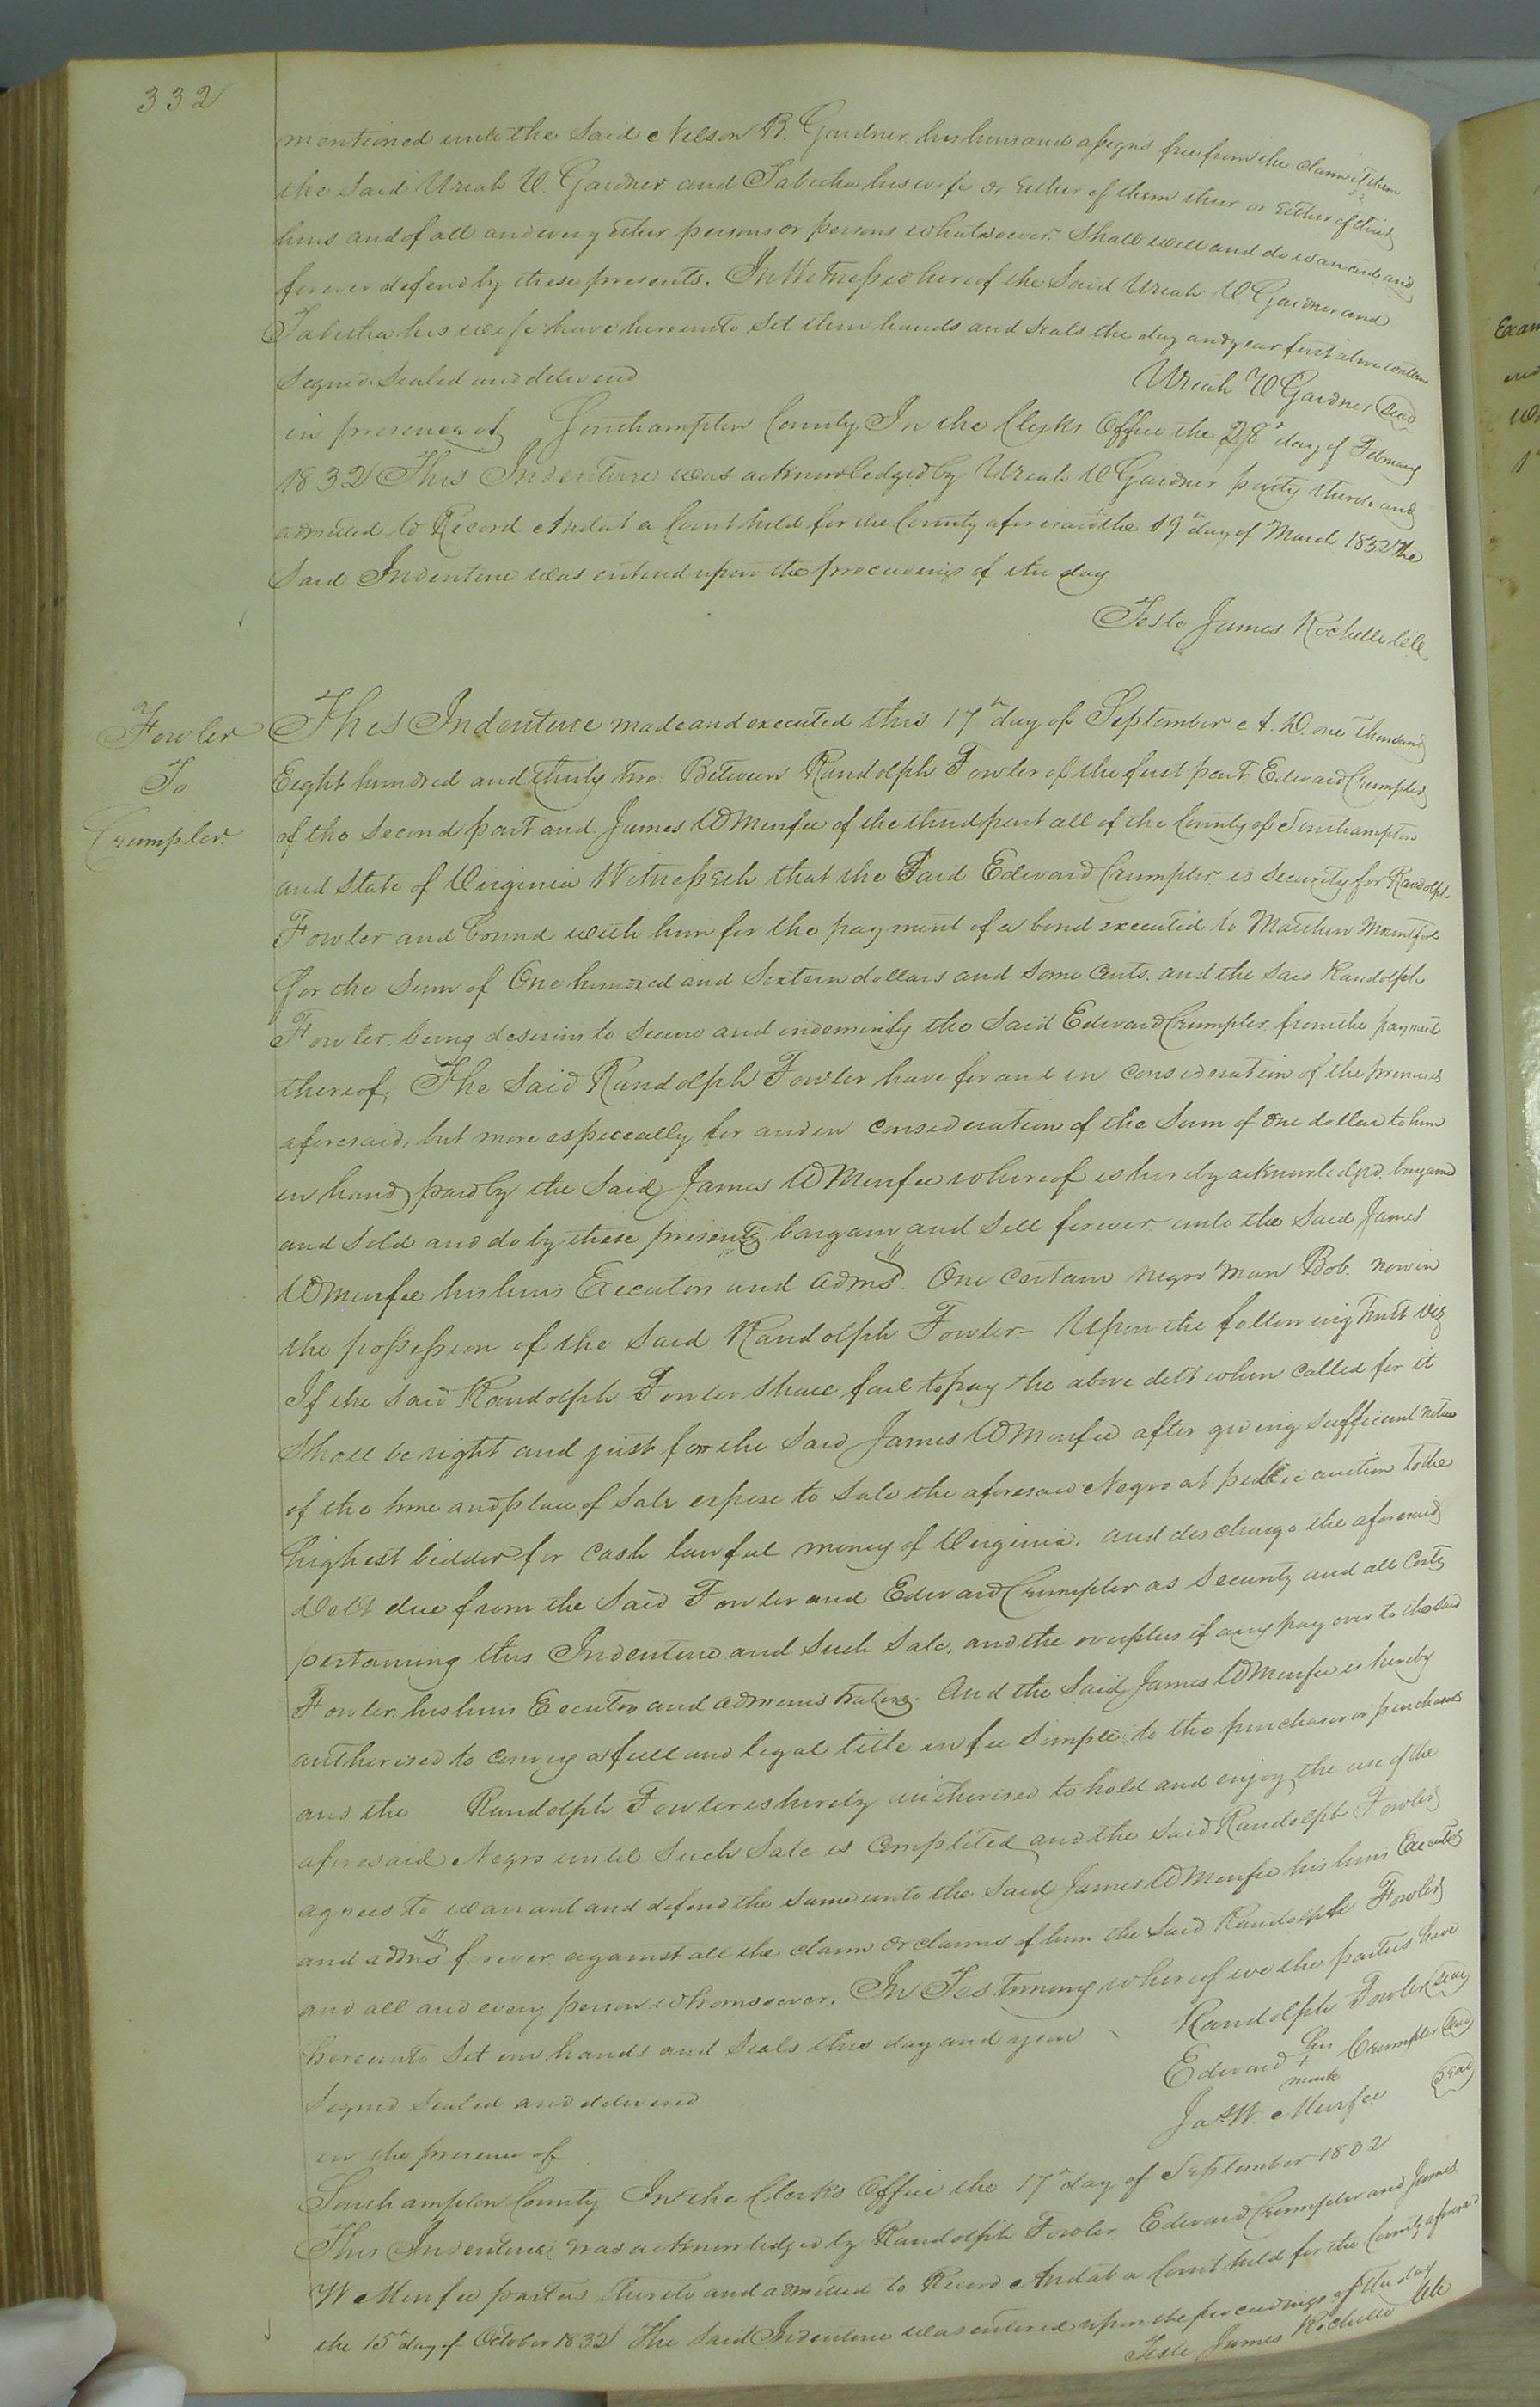 332
mentioned unto the Said Nelson B. Gardner his heirs and assigns free from the claim of them
the Said Uriah W. Gardner and Tabitha his wife or Either of them their or Either of their
heirs and of all and every other persons or persons whatsoever Shall will and do warrant and
forever defend by these presents. In Witness whereof the Said Uriah W. Gardner and
Tabitha his wife have hereunto Set their hands and Seals the day and year first above written
Signed Sealed and delivered
Uriah W Gardner Seal
in presence of Southampton County In the Clerks Office the 28th day of February
1832 This Indenture was acknowledged by Uriah W Gardner party thereto and
admitted to Record And at a Court held for the County aforesaid the 19th day of March 1832 The
Said Indenture was entered upon the proceedings of the day
Teste James Rochelle Clk
Fowler
To
Crumpler
This Indenture made and executed this 17th day of September A. D. one Thousand
Eight hundred and thirty two. Between Randolph Fowler of the first part Edward Crumpler
of the Second part and James W Murfee of the third part all of the County of Southampton
and State of Virginia Witnesseth that the Said Edward Crumpler is Security for Randolph
Fowler and bound with him for the payment of a bond executed to Matthew
for the Sum of One hundred and Sixteen dollars and Some Cents. and the Said Randolph
Fowler being desirous to Secure and indemnify the Said Edward Crumpler from the payment
thereof; The Said Randolph Fowler have for and in consideration of the premises
aforesaid, but more especially for and in consideration of the Sum of one dollar to him
in hand paid by the Said James W Murfee whereof is hereby acknowledged. bargained
and Sold and do by these presents bargain and Sell forever unto the Said James
W Murfee his heirs Executors and adms. One Certain negro man Bob. now in
the possession of the Said Randolph Fowler - Upon the following Trust viz
If the Said Randolph Fowler Shall fail to pay the above debt when called for it
Shall be right and just for the Said James W Murfee after giving Sufficient notice
of the time and place of Sale expose to Sale the aforesaid Negro at public auction to the
highest bidder for Cash lawful money of Virginia. and discharge the aforesaid
Debt due from the Said Fowler and Edward Crumpler as Security and all Costs
pertaining this Indenture and Such Sale, and the overplus if any pay over to the Said
Fowler his heirs Executors and administrators. And the Said James W Murfee is hereby
authorised to convey a full and legal title in fee Simple to the purchaser or purchasers
and the Randolph Fowler is hereby authorised to hold and enjoy the use of the
aforesaid Negro until Such Sale is Completed and the Said Randolph Fowler
agrees to warrant and defend the Same unto the Said James W Murfee his heirs Executors
and adms forever against all the claim or claims of him the Said Randolph Fowler
and all and every person whomsoever. In Testimony whereof we the parties have
hereunto Set our hands and Seals this day and year
Randolph Fowler Seal
Signed Sealed and delivered
Edward his + mark Crumpler Seal
in the presence of
Jas. W. Murfee Seal
Southampton County In the Clerks Office the 17th day of September 1832
This Indenture was acknowledged by Randolph Fowler Edward Crumpler and James
W Murfee parties thereto and admitted to Record And at a Court held for the County aforesaid
the 15th day of October 1832 The Said Indenture was entered upon the proceedings of the day
Teste James Rochelle Clk